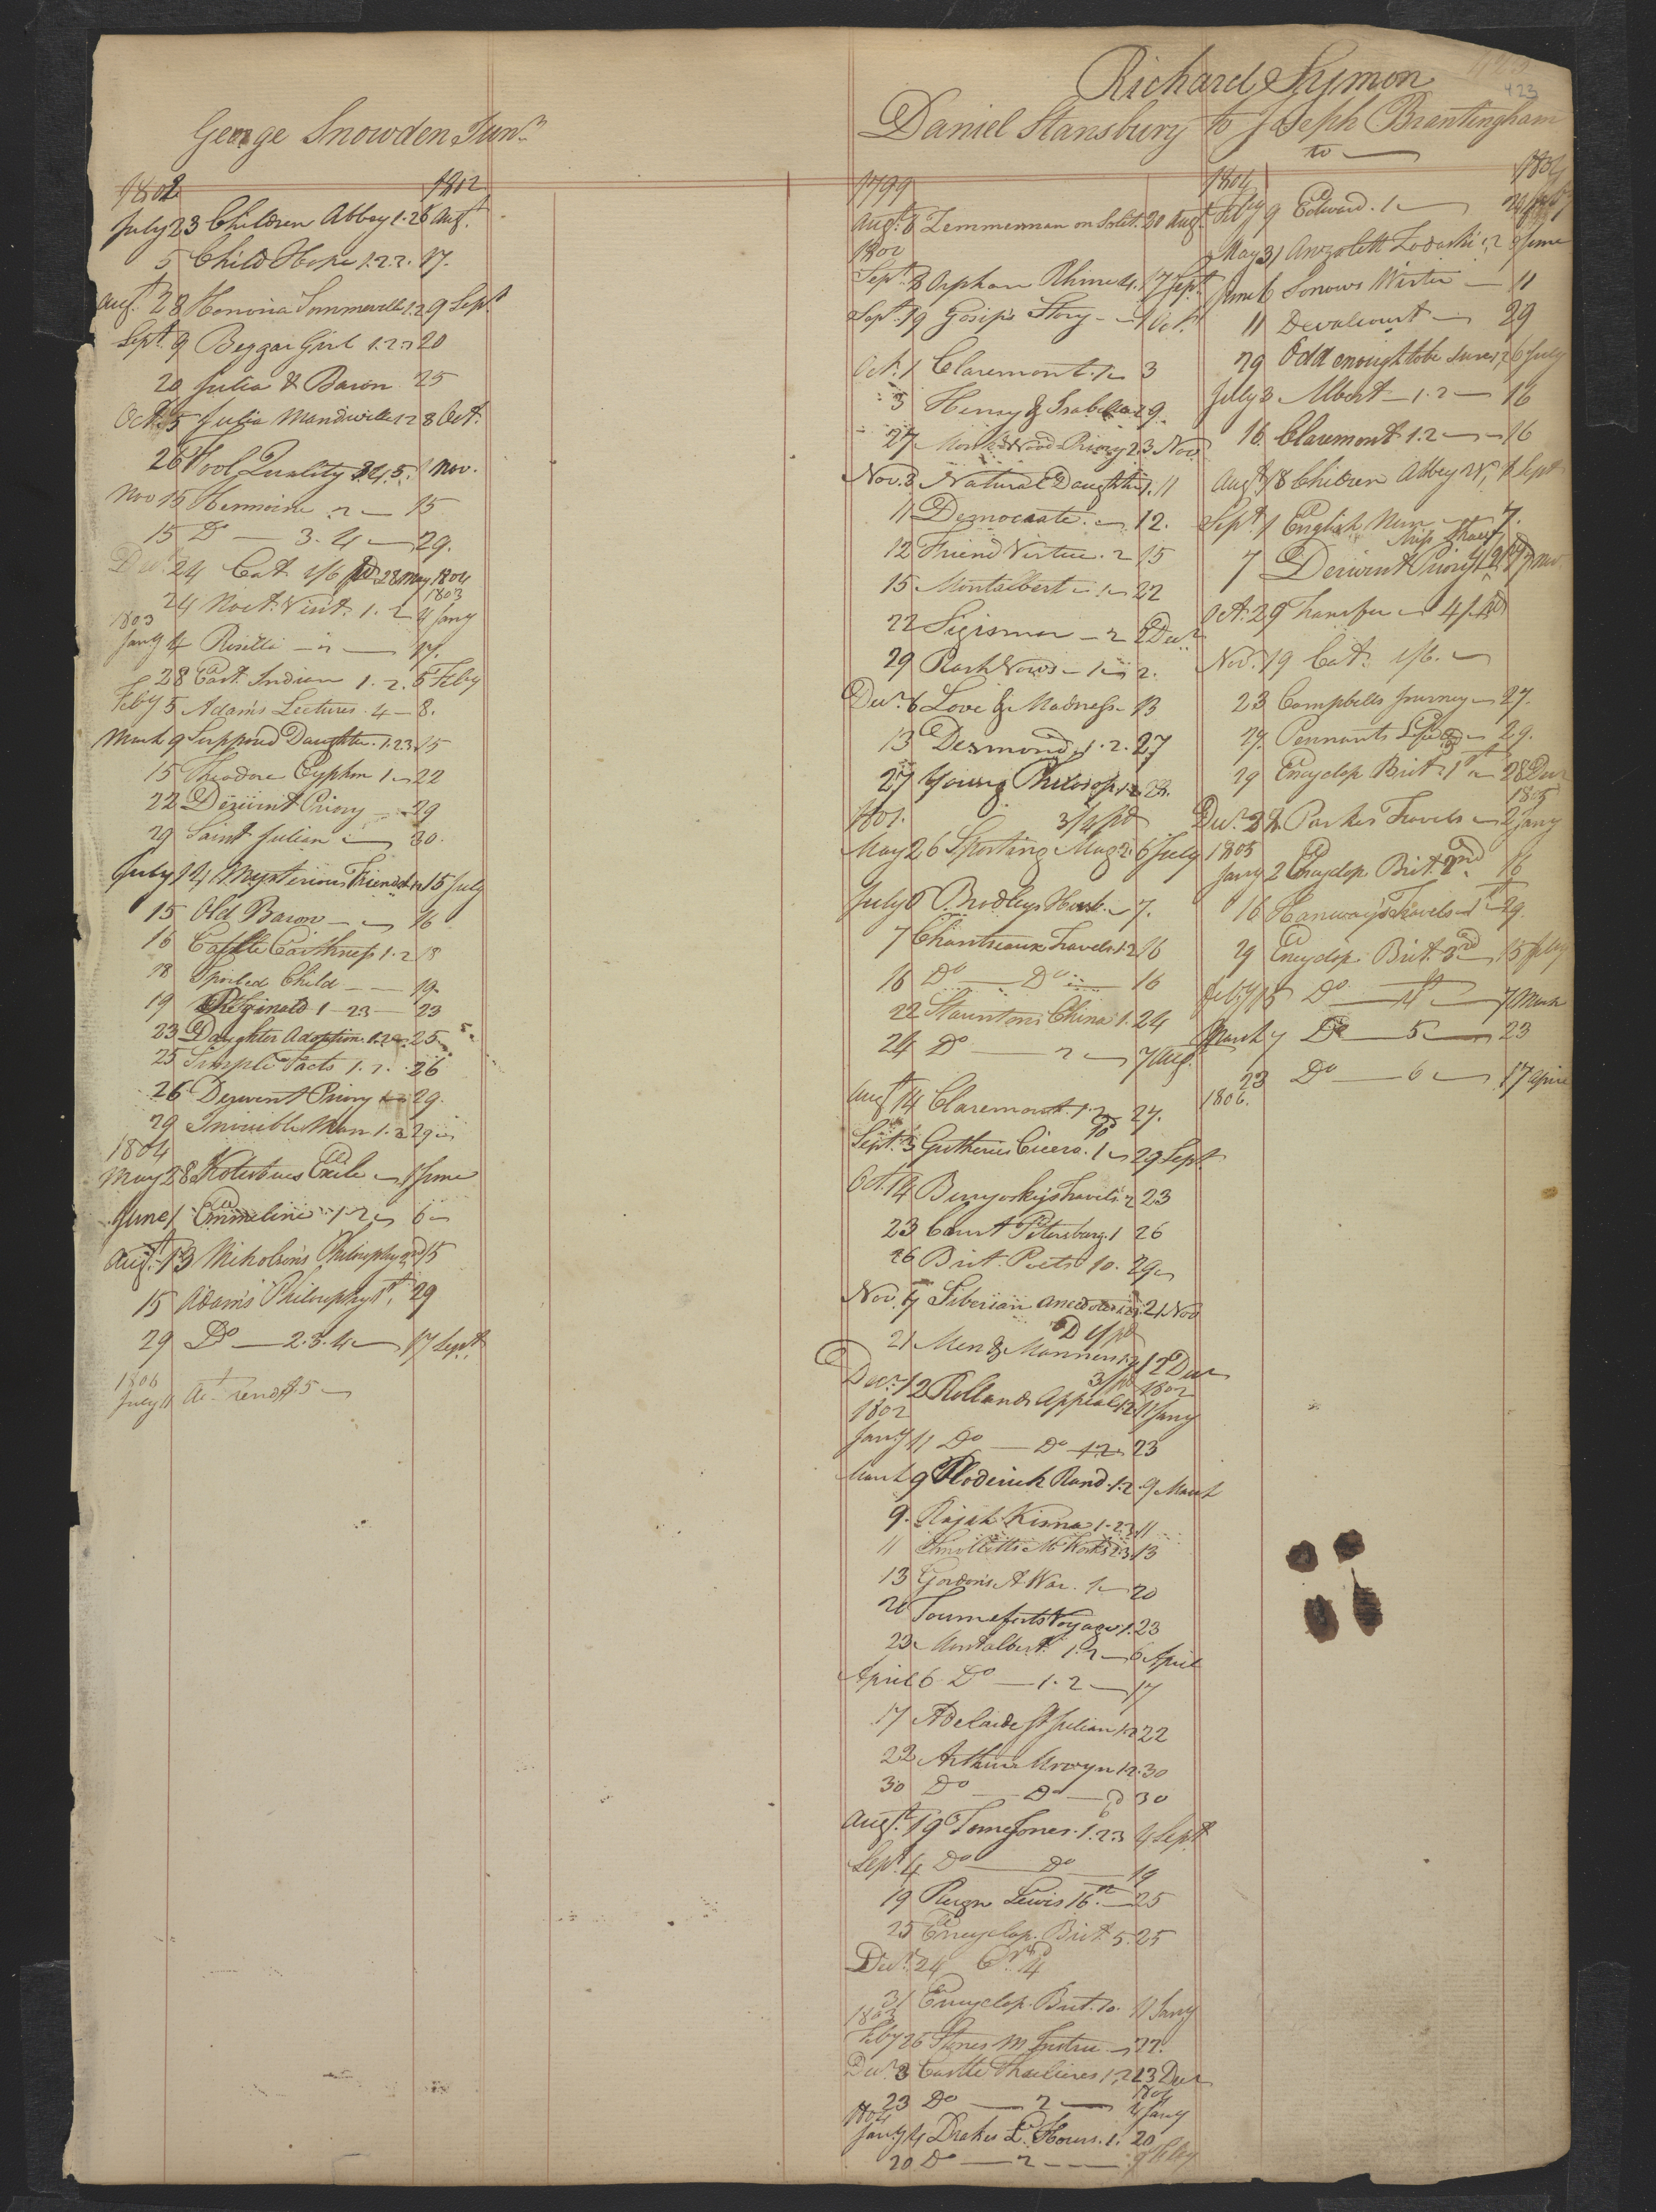 423
Richard Symon
George Snowden Junr
Daniel Stansbury to Joseph Brantingham
to
1802 1802
July 23 Children Abbey 1.2 6 Augt
5 Child Hope 1.2.3. 17.
Augt 28 Honoria Sommerville 1.2 9 Sept
Sept. 9 Beggar Girl 1.2.3 20
20 Julia & Baron 25
Oct. 5 Julia Mandiville 1 2 8 Oct.
26 Fool Quality 3.4.5. 1 Nov.
Nov 15 Hermoine 2 15
15 Do 3.4 29.
Decr 24 Cat 1/6 pd 28 May 1804
1803
24 Noct. Visit. 1.2 4 Jany
1803
Jany 4 Rosella 2 17.
28 East Indian 1.2. 5 Feby
Feby 5 Adams Lectures. 4 8.
March 9 Supposed Daughter. 1.2.3 15
15 Theodore Cyphon 1 22
22 Derwent Priory 29
29 Saint Julian 30.
July 14 Mysterious Friendsh 15 July
15 Old Baron 16
16 Castle Caithness 1.2 18
18 Spoiled Child 19.
19 Reginald 1 23 23
23 Daughter Adoption. 1.2 25
25 Simple Facts 1.2. 26
26 Derwent Priory 29.
29 Invisible Man 1.2 29
1804
May 28 Kotesbues Exile 1 June
June 1 Emmeline 1 2 6
Augt. 13 Nikolson's Philosophy 2nd 15
15 Adam's Philosophy 1st. 29
29 Do 2.3.4 17 Sept
1806
July 11 Act rend 5
1799
Augt. 8 Zemmerman on Solit. 20 Augt
1800
Sept. 8 Orphan Rhine 1. 17 Sept.
Sept. 19 Gosip's Story 1 Oct.
Oct. 1 Claremont. 1 3
3 Henry & Isabella 2 9.
27 Priory 2 3 Nov
Nov. 3 Natural Daughter 1. 11
11 Democrate. 12.
12 Friend Virtue. 2 15
15 Montalbert 1 22
22 Sigismar 2 2 Decr
29 Rash Vows 1 2.
Decr. 6 Love & Madness 13
13 Desmond 1.2. 27
27 Young Philosop. 1 2 28.
1801. 3/9 pd
May 26 Sporting Mag 2. 6 July
July 6 Bradleys Husb. 7.
7 Chantreaux Travels 1.2 16
16 Do Do 16
22 Stauntons China 1. 24
24 Do 2 7 Augt
Augt 14 Claremont. 1.2 27.
Sept. 3 Gutheries Cicero. 1 29 Sept.
Oct. 14 Benyoskys Travels 2 23
23 Court Petersburg. 1 26
26 Brit. Poets 10. 29
Nov. 7 Siberian Anecdotes 1.2. 21 Nov
21 Men & Manners 1.2 12 Decr
Decr. 12 Rolland's Appeal 1.2 11 Jany
1802
1802
Jany 11 Do Do 1.2 23
March 9 Roderick Rand. 1.2. 9 March
9. Rajah Kisna 1.2.3. 11
11 Smolletts M. Works 2.3. 13
13 Gordon's A. War. 1 20
20 Tourneforts Voyages 1. 23
23 Montalbert 1.2 6 April
April 6 Do 1.2 17
17 Adelaide St Julian 1.2 22
22 Arthur Mervyn 1.2. 30
30 Do Do 30
Augt. 19 Tom Jones. 1.2.3 4 Sept
Sept. 4 Do Do 19
19 Reign Lewis 16th 25
25 Encyclop. Brit 5. 25
Decr. 24 Cr. 4
31 Encyclop. Brit. 10. 11 Jany
1803
Feby 26 Stones M. Instru 27.
Decr. 3 Castle Thuilieres 1, 2 23 Decr
1804
23 Do 2 4 Jany
1804
Jany 4 Drakes L. Hours. 1. 20
20 Do 2 9 Feby
1804 1804
Feby 9 Edward. 1 24 Feby
May 31 Anzoletti Zodoski 1, 2 6 June
June 6 Sorrows Werter 11
11 Devalcourt 29
29 Odd enough to be sure 1, 2 6 July
July 8 Albert 1.2 16
16 Claremont 1.2 16
Augt 18 Children Abbey 1 Sept
Sept 1 English Nun 7.
7 Derwent Priory
Oct. 29 Transfer 4/ pd
Nov. 19 Cat. 1/6.
23 Campbells Journey 27.
27. Pennants Life 29.
29 Encyclop Brit. 1st 28 Decr
1805
Decr. 28 Parkes Travels 2 Jany
1805
Jany 2 Encyclop Brit. 2nd 16
16 Hanway's Travels 1st 29.
29 Encyclop. Brit. 3rd 15 Feby
Feby 15 Do 4th 7 March
March 7 Do 5 23
23 Do 6 17 April
1806.